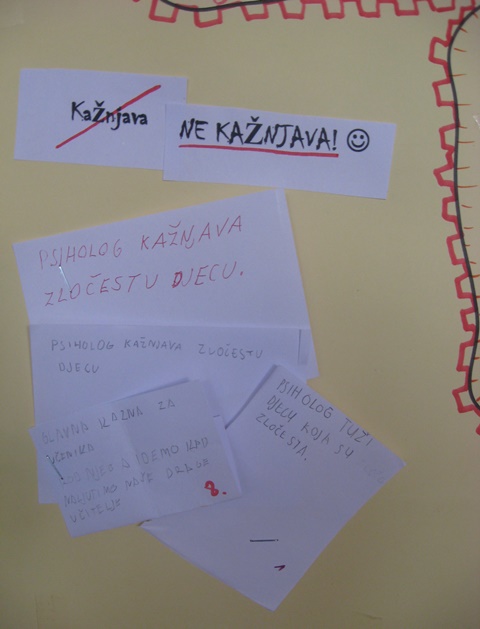 Kažnjava
NE KAŽNJAVA! ☺
PSIHOLOG KAŽNJAVA
ZLOČESTU DJECU.
PSIHOLOG KAŽNJAVA ZLOČESTU
DJECU
GLAVNA KAZNA ZA
UČENIKA
KOD NJEGA IDEMO KAD
NALJUTIMO NAŠE DRAGE
UČITELJE
8.
PSIHOLOG TUŽI
DJECU KOJA SU
ZLOČESTA.